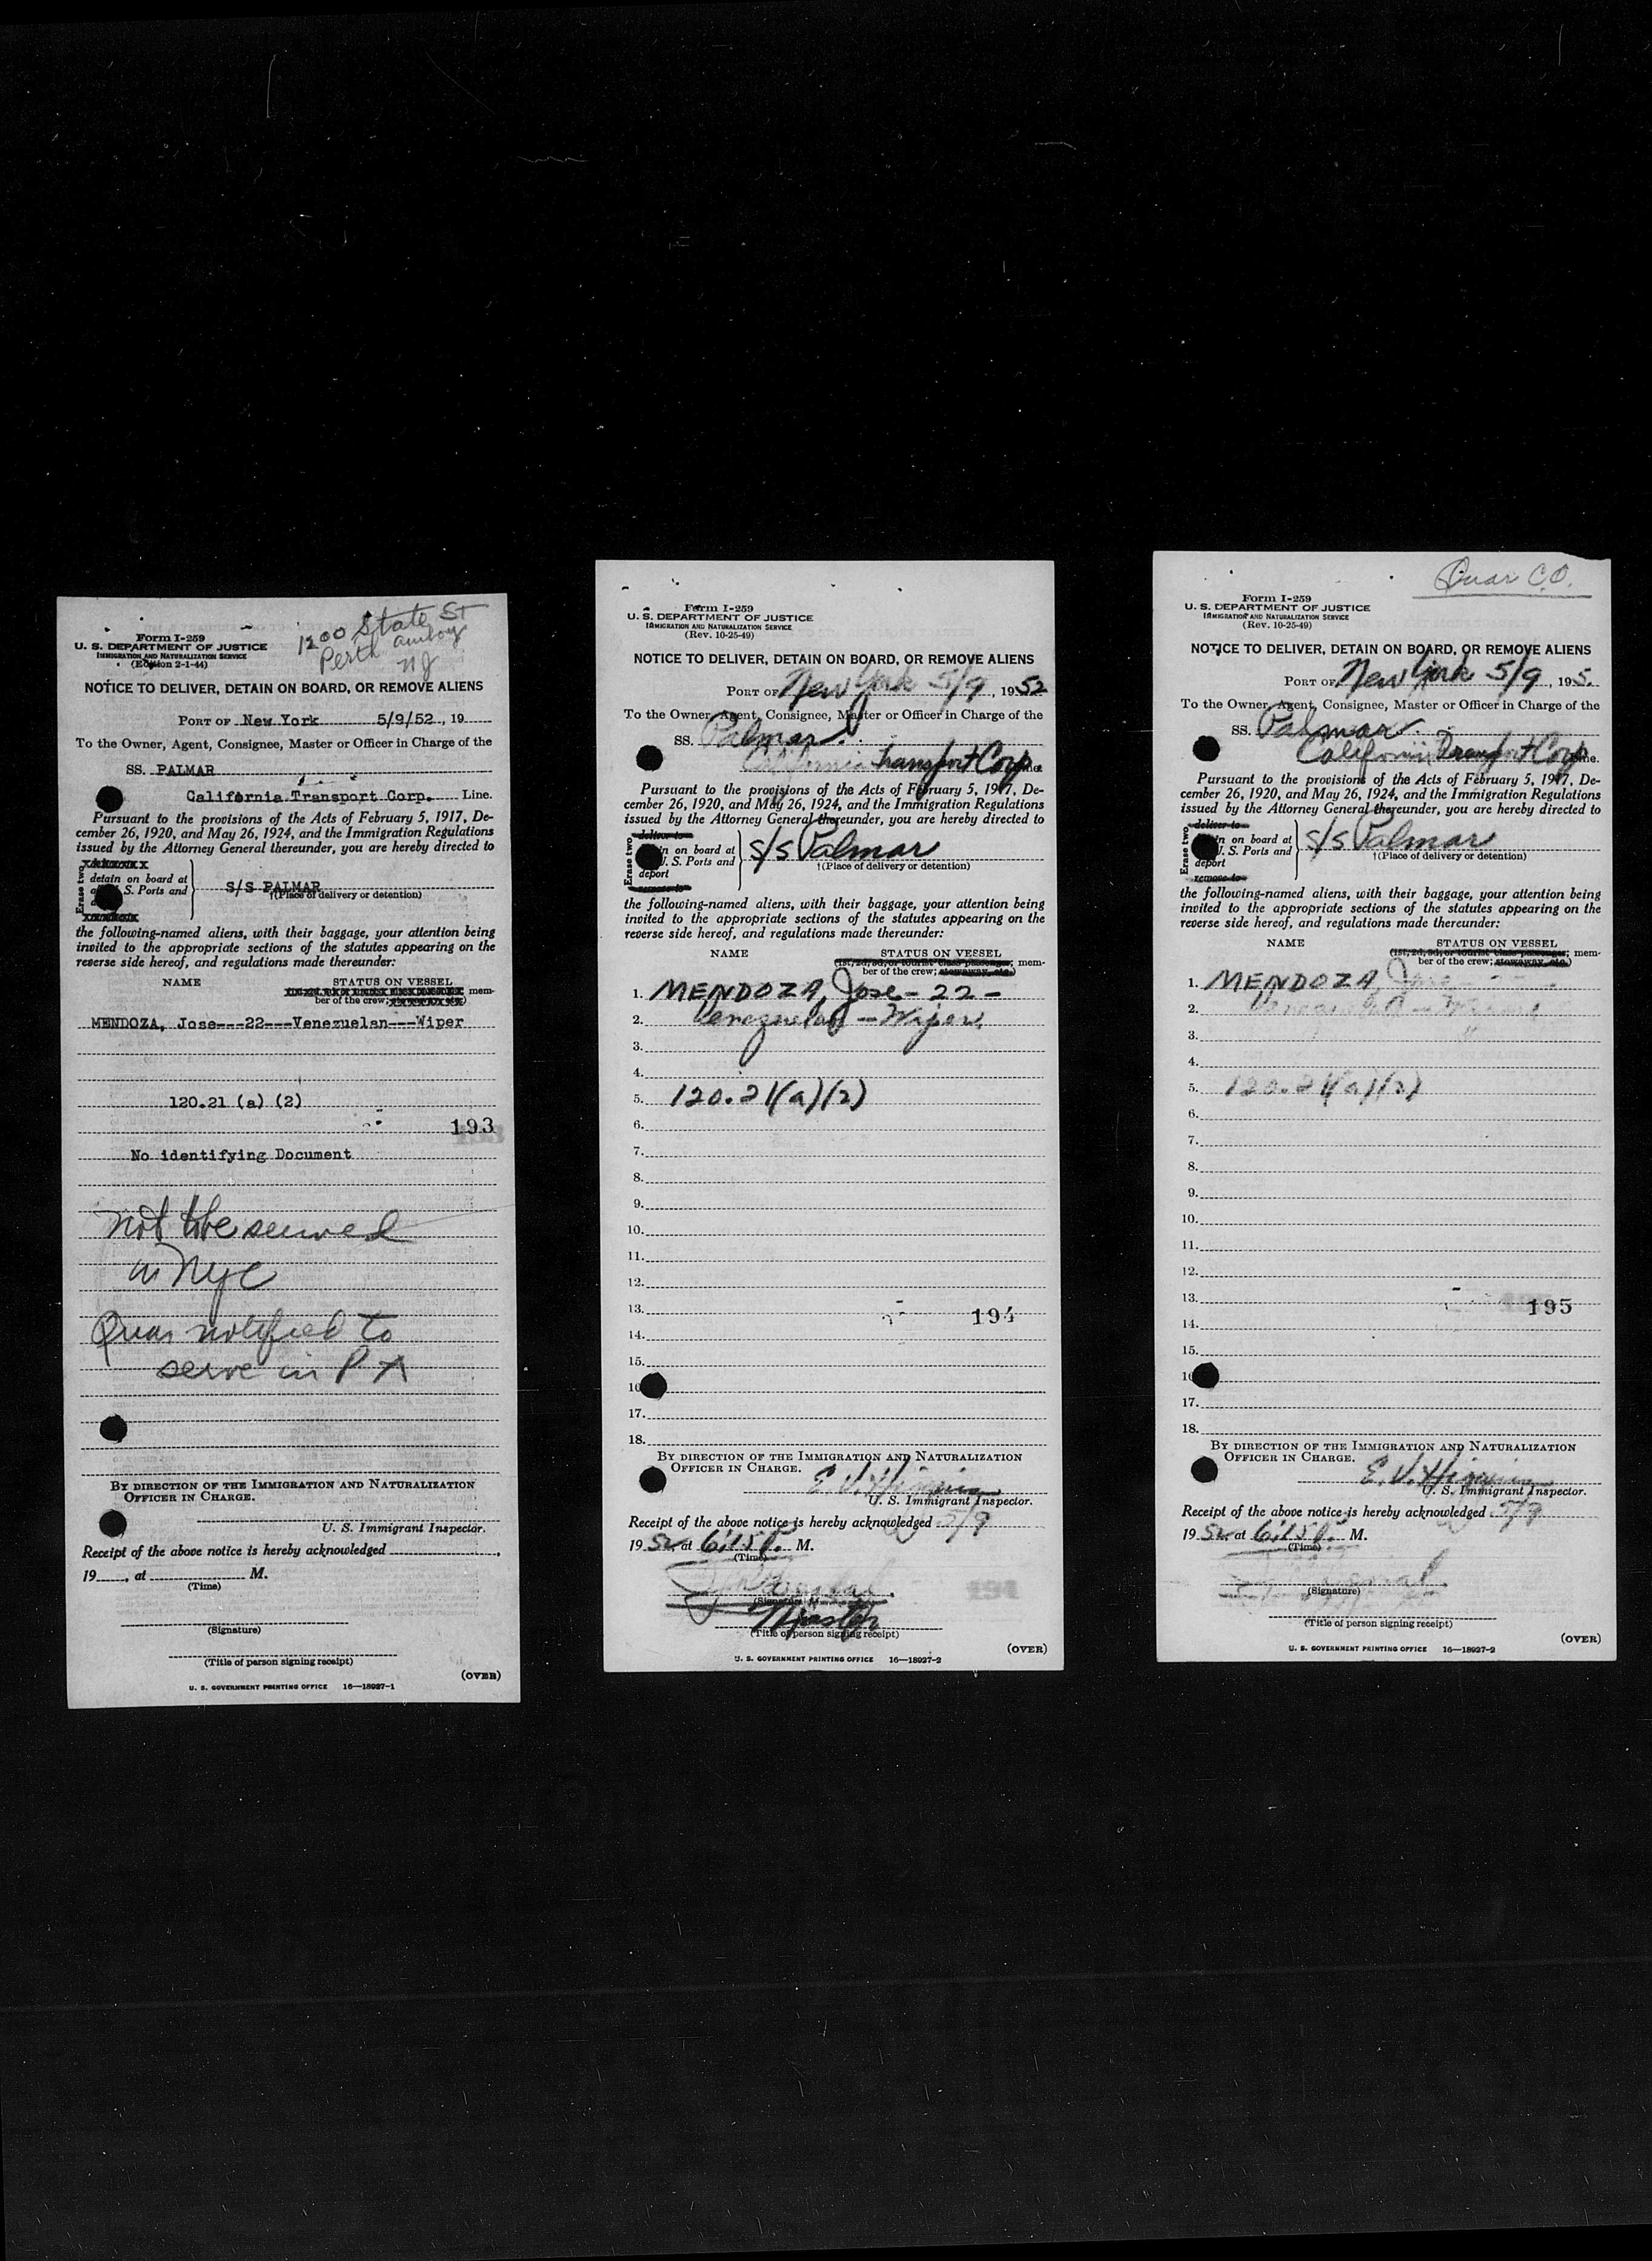 1200 State St
Perth Amboy
NJ
Form I-259
U. S. DEPARTMENT OF JUSTICE
IMMIGRATION AND NATURALIZATION SERVICE
(Edition 2-1-44)
NOTICE TO DELIVER, DETAIN ON BOARD, OR REMOVE ALIENS
PORT OF New York 5/9/52, 19
To the Owner, Agent, Consignee, Master or Officer in Charge of the
SS. PALMAR
California Transport Corp. Line.
Pursuant to the provisions of the Acts of February 5, 1917, De-
cember 26, 1920, and May 26, 1924, and the Immigration Regulations
issued by the Attorney General thereunder, you are hereby directed to
Erase two
detain on board at
S. Ports and
S/S PALMAR
†(Place of delivery or detention)
the following-named aliens, with their baggage, your attention being
invited to the appropriate sections of the statutes appearing on the
reverse side hereof, and regulations made thereunder:
NAME STATUS ON VESSEL
mem-
ber of the crew;
MENDOZA, Jose---22---Venezuelan---Wiper
120.21 (a) (2)
193
No identifying Document
not to be served
in NYC
Quar notified to
serve in P A
BY DIRECTION OF THE IMMIGRATION AND NATURALIZATION
OFFICER IN CHARGE.
U. S. Immigrant Inspector.
Receipt of the above notice is hereby acknowledged
19, at M.
(Time)
(Signature)
(Title of person signing receipt)
(OVER)
U. S. GOVERNMENT PRINTING OFFICE 16—18927-1
Form I-259
U. S. DEPARTMENT OF JUSTICE
IMMIGRATION AND NATURALIZATION SERVICE
(Rev. 10-25-49)
NOTICE TO DELIVER, DETAIN ON BOARD, OR REMOVE ALIENS
PORT OF New York 5/9, 1952
To the Owner, Agent, Consignee, Master or Officer in Charge of the
SS. Palmar
California Transport Corp
Pursuant to the provisions of the Acts of February 5, 1917, De-
cember 26, 1920, and May 26, 1924, and the Immigration Regulations
issued by the Attorney General thereunder, you are hereby directed to
Erase two
deliver to
in on board at
U. S. Ports and
deport
remove to
S/S Palmar
†(Place of delivery or detention)
the following-named aliens, with their baggage, your attention being
invited to the appropriate sections of the statutes appearing on the
reverse side hereof, and regulations made thereunder:
NAME STATUS ON VESSEL
(1st, 2d, 3d, or tourist class passenger; mem-
ber of the crew; stowaway, etc.)
1. MENDOZA, Jose - 22 -
2. Venezuelan - Wiper
3.
4.
5. 120.21(a)(2)
6.
7.
8.
9.
10.
11.
12.
13. 194
14.
15.
16
17.
18.
BY DIRECTION OF THE IMMIGRATION AND NATURALIZATION
OFFICER IN CHARGE.
E. V.
U. S. Immigrant Inspector.
Receipt of the above notice is hereby acknowledged 5/9
1952, at 6:15 P. M.
(Time)
(Signature)
Master
(Title of person signing receipt)
(OVER)
U. S. GOVERNMENT PRINTING OFFICE 16—18927-2
Quar C.O.
Form I-259
U. S. DEPARTMENT OF JUSTICE
IMMIGRATION AND NATURALIZATION SERVICE
(Rev. 10-25-49)
NOTICE TO DELIVER, DETAIN ON BOARD, OR REMOVE ALIENS
PORT OF New York 5/9, 195
To the Owner, Agent, Consignee, Master or Officer in Charge of the
SS. Palmar
California Transport Corp
Pursuant to the provisions of the Acts of February 5, 1917, De-
cember 26, 1920, and May 26, 1924, and the Immigration Regulations
issued by the Attorney General thereunder, you are hereby directed to
Erase two
deliver to
in on board at
U. S. Ports and
deport
remove to
S/S Palmar
†(Place of delivery or detention)
the following-named aliens, with their baggage, your attention being
invited to the appropriate sections of the statutes appearing on the
reverse side hereof, and regulations made thereunder:
NAME STATUS ON VESSEL
(1st, 2d, 3d, or tourist class passenger; mem-
ber of the crew; stowaway, etc.)
1. MENDOZA, Jose -
2. Venezuelan - Wiper
3.
4.
5. 120.21(a)(2)
6.
7.
8.
9.
10.
11.
12.
13. 195
14.
15.
16
17.
18.
BY DIRECTION OF THE IMMIGRATION AND NATURALIZATION
OFFICER IN CHARGE.
E. V.
U. S. Immigrant Inspector.
Receipt of the above notice is hereby acknowledged 5/9
1952, at 6:15 P. M.
(Time)
(Signature)
(Title of person signing receipt)
(OVER)
U. S. GOVERNMENT PRINTING OFFICE 16—18927-2